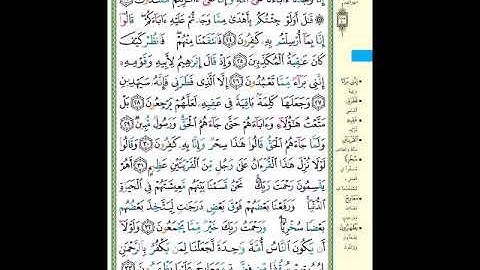 قُلْ أَوَلَوْ جِئْتُكُم بِأَهْدَىٰ مِمَّا وَجَدتُّمْ عَلَيْهِ ءَابَآءَكُمْ ۖ قَالُوٓا۟
إِنَّا بِمَآ أُرْسِلْتُم بِهِۦ كَٰفِرُونَ ﴿٢٤﴾ فَٱنتَقَمْنَا مِنْهُمْ ۖ فَٱنظُرْ كَيْفَ
كَانَ عَٰقِبَةُ ٱلْمُكَذِّبِينَ ﴿٢٥﴾ وَإِذْ قَالَ إِبْرَٰهِيمُ لِأَبِيهِ وَقَوْمِهِۦٓ
إِنَّنِى بَرَآءٌ مِّمَّا تَعْبُدُونَ ﴿٢٦﴾ إِلَّا ٱلَّذِى فَطَرَنِى فَإِنَّهُۥ سَيَهْدِينِ
﴿٢٧﴾ وَجَعَلَهَا كَلِمَةًۢ بَاقِيَةً فِى عَقِبِهِۦ لَعَلَّهُمْ يَرْجِعُونَ ﴿٢٨﴾ بَلْ
مَتَّعْتُ هَٰٓؤُلَآءِ وَءَابَآءَهُمْ حَتَّىٰ جَآءَهُمُ ٱلْحَقُّ وَرَسُولٌ مُّبِينٌ ﴿٢٩﴾
وَلَمَّا جَآءَهُمُ ٱلْحَقُّ قَالُوا۟ هَٰذَا سِحْرٌ وَإِنَّا بِهِۦ كَٰفِرُونَ ﴿٣٠﴾ وَقَالُوا۟
لَوْلَا نُزِّلَ هَٰذَا ٱلْقُرْءَانُ عَلَىٰ رَجُلٍ مِّنَ ٱلْقَرْيَتَيْنِ عَظِيمٍ ﴿٣١﴾ أَهُمْ
يَقْسِمُونَ رَحْمَتَ رَبِّكَ ۚ نَحْنُ قَسَمْنَا بَيْنَهُم مَّعِيشَتَهُمْ فِى ٱلْحَيَوٰةِ
ٱلدُّنْيَا ۚ وَرَفَعْنَا بَعْضَهُمْ فَوْقَ بَعْضٍ دَرَجَٰتٍ لِّيَتَّخِذَ بَعْضُهُم
بَعْضًا سُخْرِيًّا ۗ وَرَحْمَتُ رَبِّكَ خَيْرٌ مِّمَّا يَجْمَعُونَ ﴿٣٢﴾ وَلَوْلَآ
أَن يَكُونَ ٱلنَّاسُ أُمَّةً وَٰحِدَةً لَّجَعَلْنَا لِمَن يَكْفُرُ بِٱلرَّحْمَٰنِ
لِبُيُوتِهِمْ سُقُفًا مِّن فِضَّةٍ وَمَعَارِجَ عَلَيْهَا يَظْهَرُونَ ﴿٣٣﴾